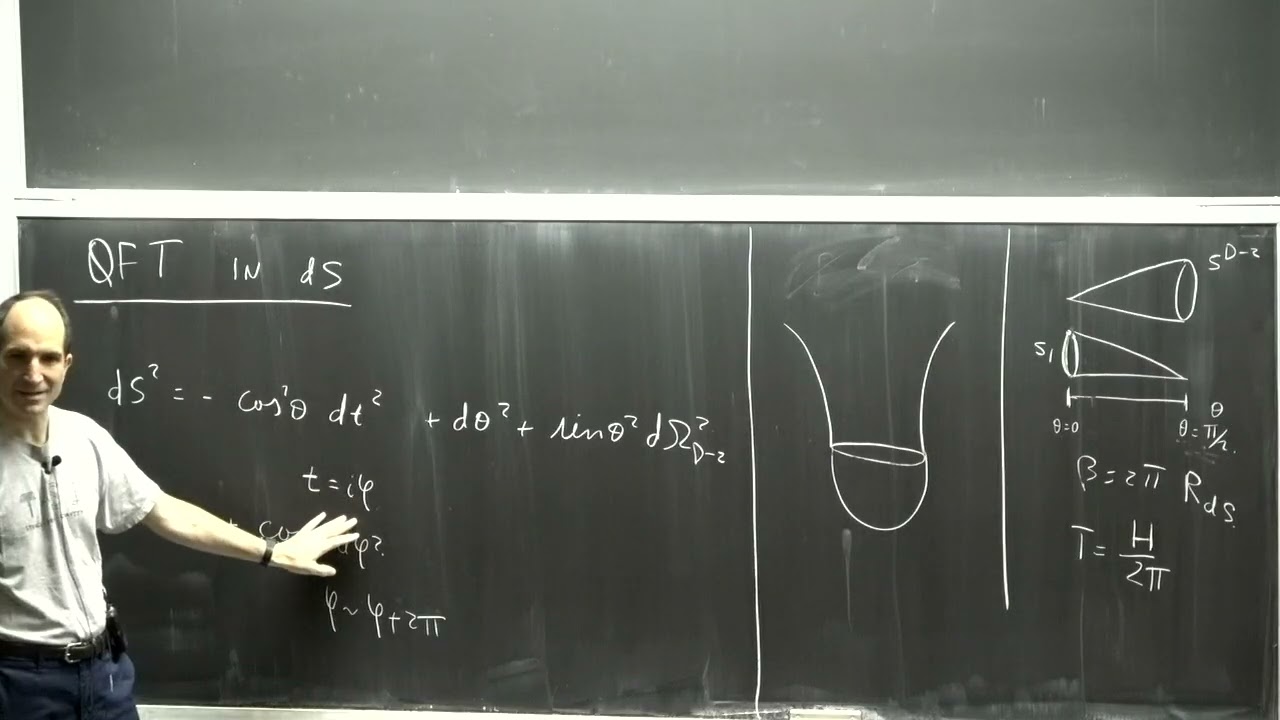 QFT IN dS
dS² = - cos²θ dt² + dθ² + sinθ² dΩ²_{D-2}
t = iφ
+ co dφ².
φ ~ φ + 2π
S^{D-2}
S₁
θ
θ=0 θ = π/2.
β = 2π R_{dS}.
T = H/2π